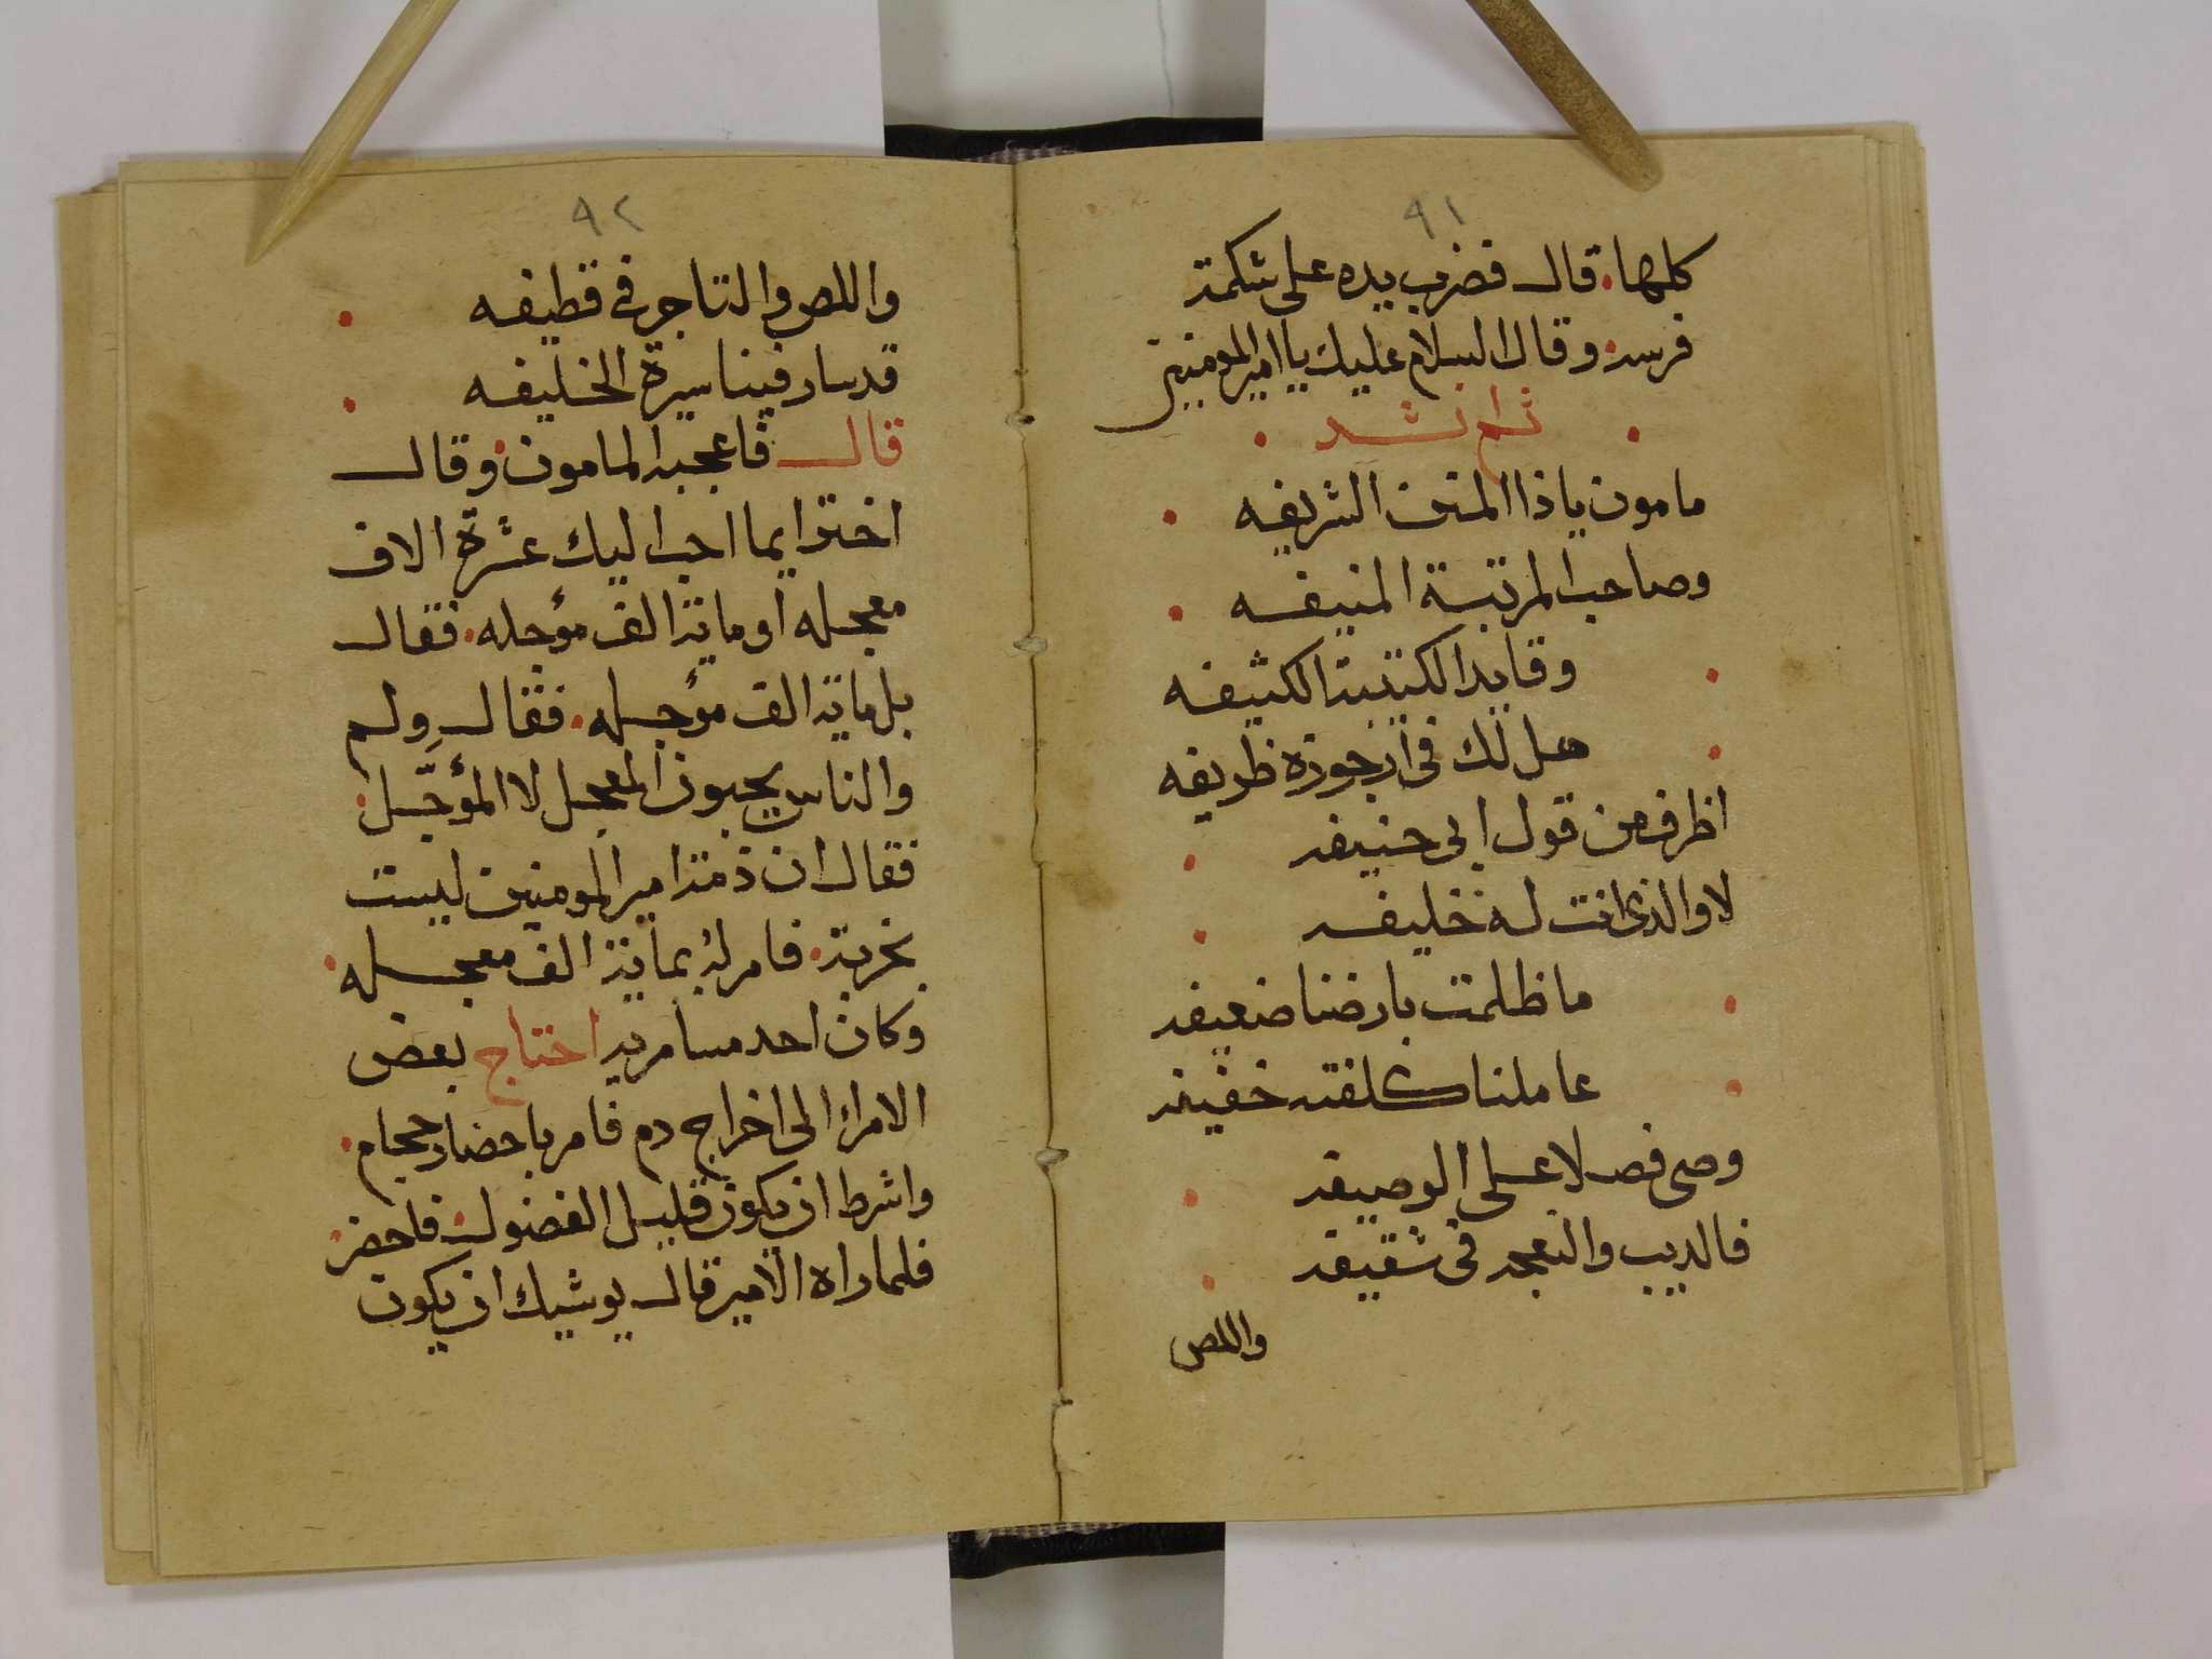 ٩١
كلها. قال فضرب بيده على شكمة
فرسه. وقال السلام عليك يا امير المومنين
ثم انشد
مامون يا ذا المنن الشريفه
وصاحب المرتبة المنيفه
وقايد الكتيبة الكثيفه
هل لك في ارجوزة ظريفه
اظرف من قول ابى حنيفه
لا والذى انت له خليفه
ما ظلمت بارضنا ضعيفه
عاملنا كلفته خفيفه
وصى فصلا على الوصيفه
فالديب والنعجه في سقيفه
واللص
٩٢
واللص والتاجر في قطيفه
قد سار فينا سيرة الخليفه
قال فاعجبه المامون. وقال
اختر ايما احب اليك عشرة الاف
معجله أو ماية الف مؤجله. فقال
بل ماية الف مؤجله. فقال وِلم
والناس يحبون المعجل لا المؤجّل.
فقال ان ذمة امير المومنين ليست
بخربة. فامر له بماية الف معجله.
وكان احد مسامريه احتاج بعض
الامراء الى اخراج دم فامر باحضار حجام.
واشرط ان يكون قليل الفضول. فاحضر.
فلما راه الامير قال يوشيك ان يكون